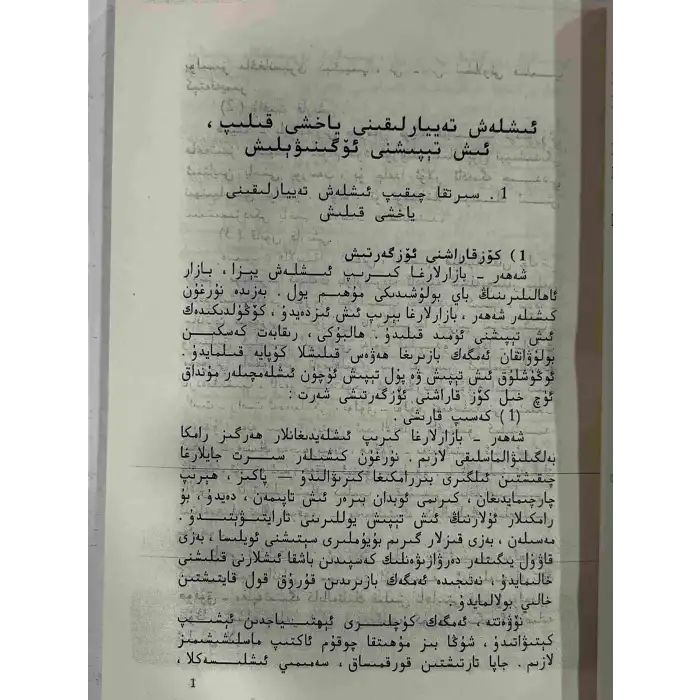 ئىشلەش تەييارلىقىنى ياخشى قىلىپ ،
ئىش تېپىشنى ئۆگىنىۋېلىش
1 . سىرتقا چىقىپ ئىشلەش تەييارلىقىنى
ياخشى قىلىش
1) كۆزقاراشنى ئۆزگەرتىش
شەھەر ـ بازارلارغا كىرىپ ئىشلەش يېزا ، بازار
ئاھالىلىرىنىڭ باي بولۇشىدىكى مۇھىم يول . بەزىدە نۇرغۇن
كىشىلەر شەھەر ، بازارلارغا بېرىپ ئىش ئىزدەيدۇ ، كۆڭۈلدىكىدەك
ئىش تېپىشنى ئۈمىد قىلىدۇ . ھالبۇكى ، رىقابەت كەسكىن
بولۇۋاتقان ئەمگەك بازىرىغا ھەۋەس قىلىشلا كۇپايە قىلمايدۇ .
ئوڭۇشلۇق ئىش تېپىش ۋە پۇل تېپىش ئۈچۈن ئىشلەمچىلەر مۇنداق
ئۈچ خىل كۆز قاراشنى ئۆزگەرتىشى شەرت :
(1) كەسىپ قارىشى .
شەھەر ـ بازارلارغا كىرىپ ئىشلەيدىغانلار ھەرگىز رامكا
بەلگىلىۋالماسلىقى لازىم . نۇرغۇن كىشىلەر سىرت جايلارغا
چىقىشتىن ئىلگىرى بىررامكىغا كىرىۋالىدۇ — پاكىز ، ھېرىپ
چارچىمايدىغان ، كىرىمى ئوبدان بىرەر ئىش تاپىمەن ، دەيدۇ ، بۇ
رامكىلار ئۇلارنىڭ ئىش تېپىش يوللىرىنى تارايتىۋېتىدۇ .
مەسىلەن ، بەزى قىزلار گىرىم بۇيۇملىرى سېتىشنى ئويلىسا ، بەزى
قاۋۇل يىگىتلەر دەرۋازىۋەنلىك كەسپىدىن باشقا ئىشلارنى قىلىشنى
خالىمايدۇ ، نەتىجىدە ئەمگەك بازىرىدىن قۇرۇق قول قايتىشتىن
خالىي بولالمايدۇ .
نۆۋەتتە ، ئەمگەك كۈچلىرى ئېھتىياجدىن ئېشىپ
كېتىۋاتىدۇ ، شۇڭا بىز مۇھىتقا چوقۇم ئاكتىپ ماسلىشىشىمىز
لازىم . جاپا تارتىشتىن قورقمىساق ، سەمىمىي ئىشلىسەكلا ،
1